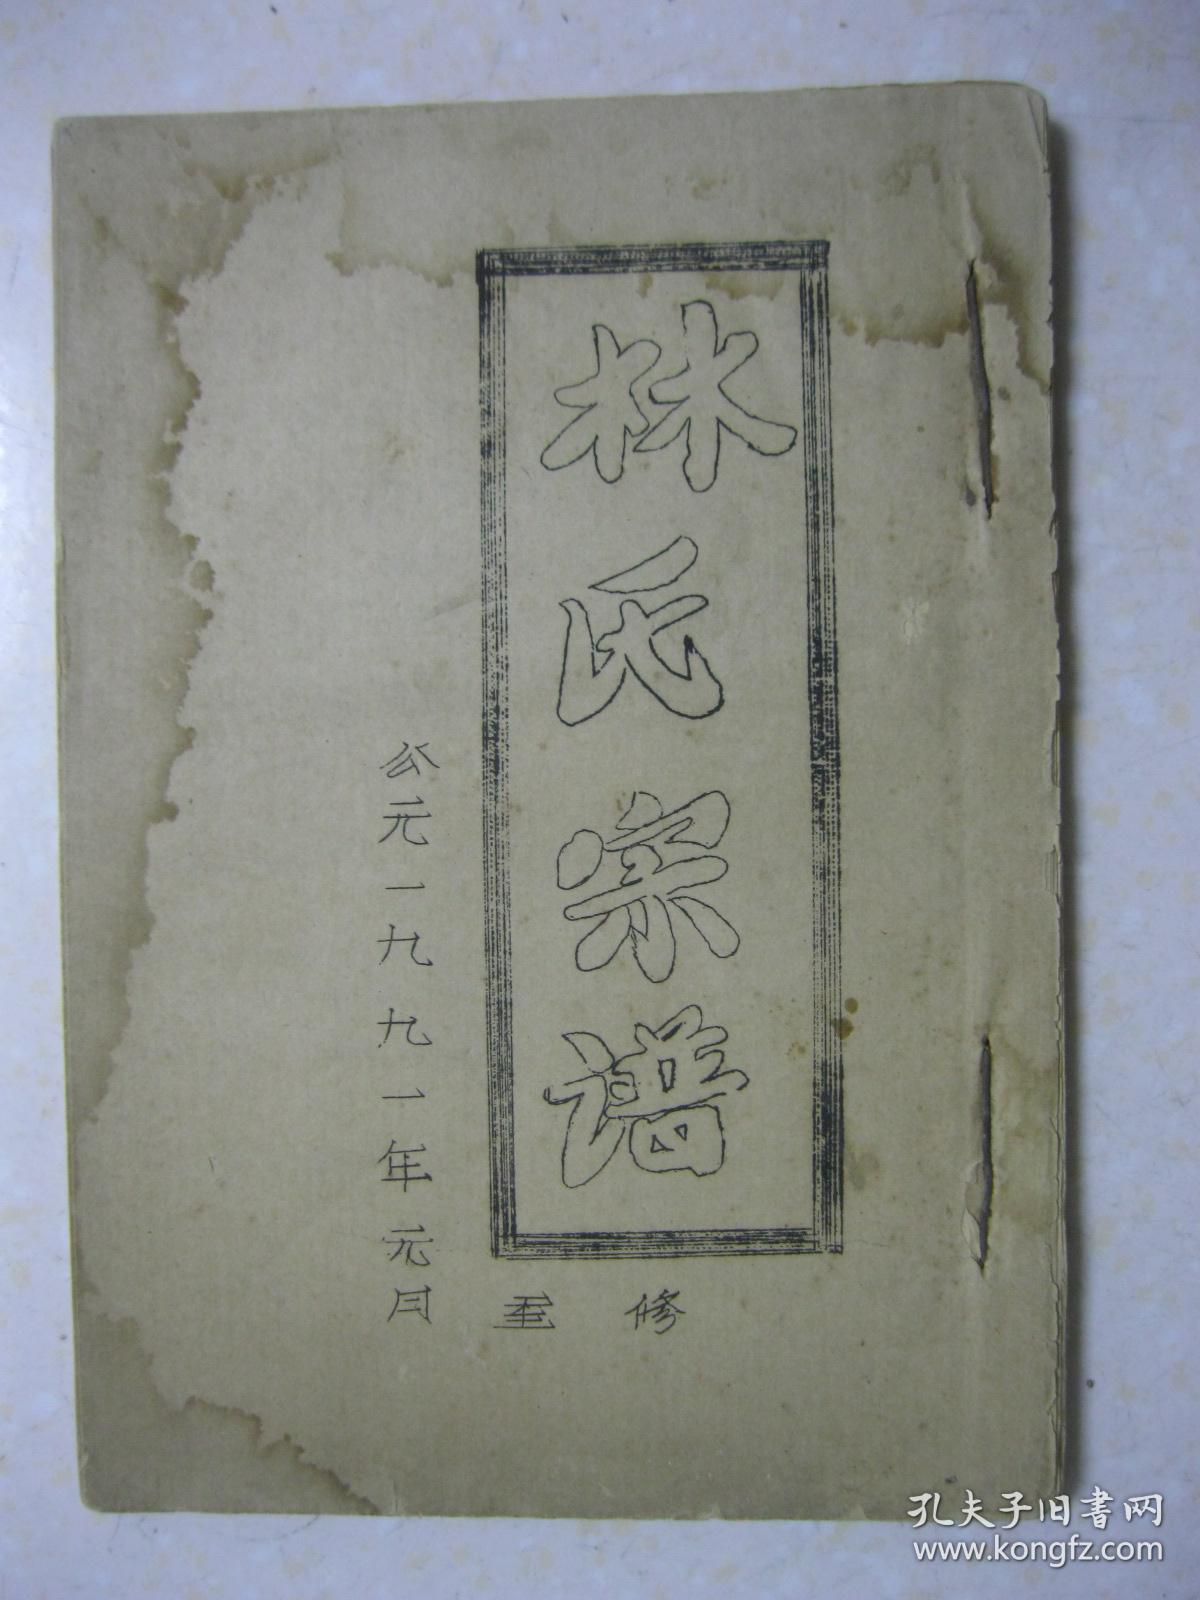 林氏宗谱
重修
公元一九九一年元月
孔夫子旧書网
www.kongfz.com